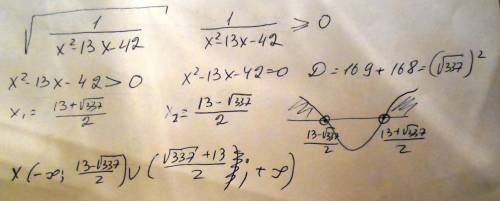 √(1/(x²-13x-42))   1/(x²-13x-42) ≥ 0
x²-13x-42>0   x²-13x-42=0   D=169+168=(√337)²
x₁=(13+√337)/2   x₂=(13-√337)/2
(13-√337)/2   (13+√337)/2
x(-∞; (13-√337)/2)∪((√337+13)/2; +∞)